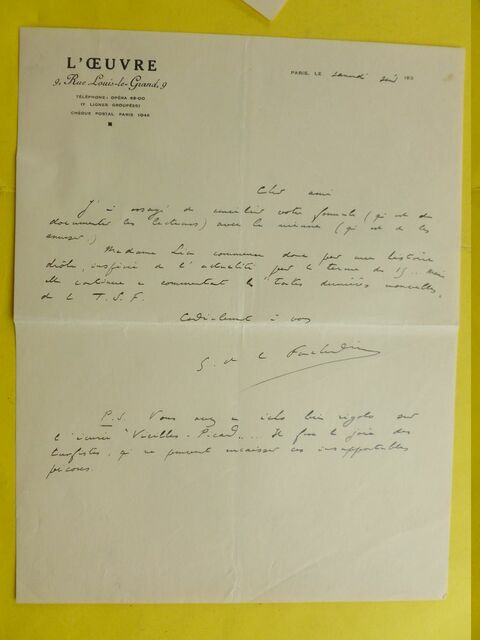 L'ŒUVRE
9, Rue Louis-le-Grand, 9
TÉLÉPHONE : OPÉRA 65-00
(7 LIGNES GROUPÉES)
CHÈQUE POSTAL PARIS 1046
PARIS, LE samedi soir 193
Cher ami
J'ai essayé de concilier votre formule (qui est de
documenter les lecteurs) avec la mienne (qui est de les
amuser.)
Madame Lia commence donc par une histoire
drôle, inspirée de l'actualité par le terme du 15... mais
elle continue en commentant les "toutes dernières nouvelles"
de la T.S.F.
Cordialement à vous
G. de la
P.S. Vous avez un écho bien rigolo sur
l'écurie "Vieilles-Picard".... Il fera la joie des
turfistes, qui ne peuvent encaisser ces insupportables